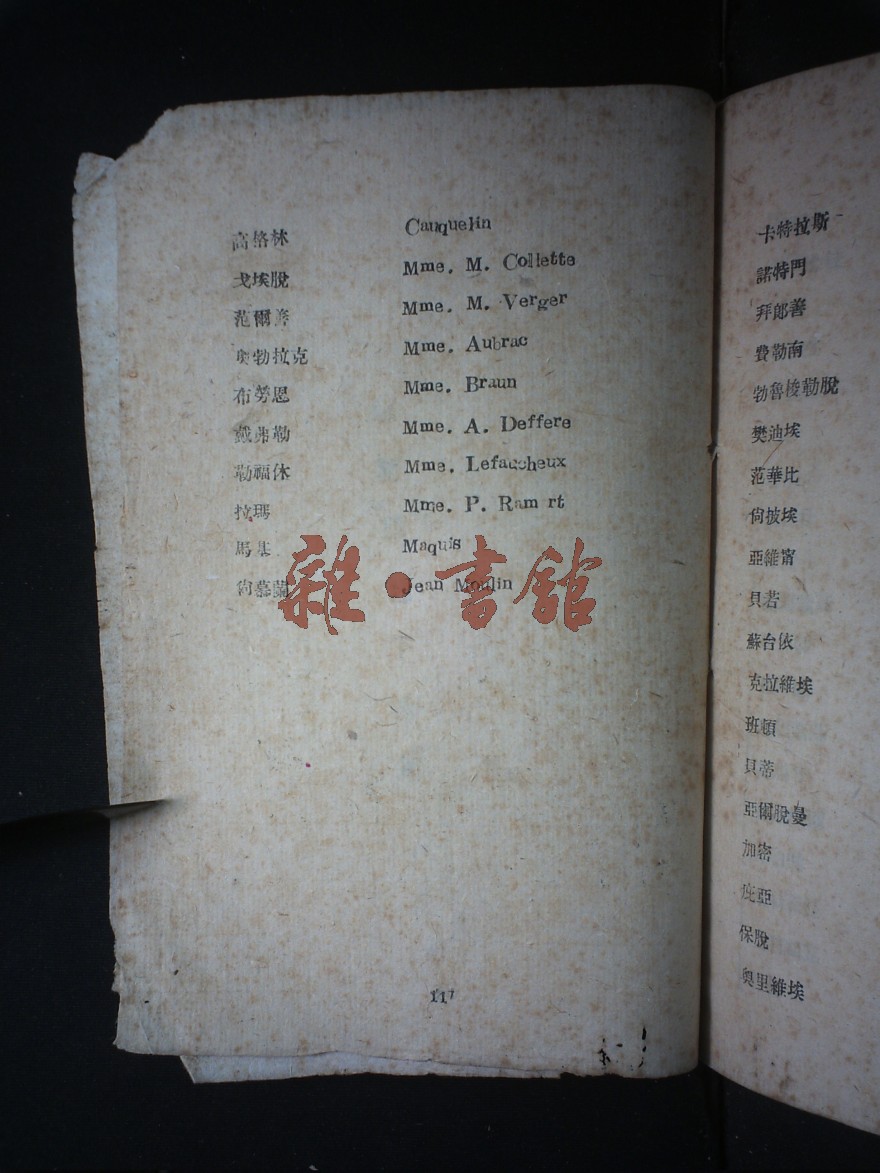 高格林 Cauquelin
戈埃脫 Mme. M. Collette
范爾 Mme. M. Verger
奧勃拉克 Mme. Aubrac
布勞恩 Mme. Braun
戴弗勒 Mme. A. Deffere
勒福休 Mme. Lefaucheux
拉瑪 Mme. P. Ram rt
馬基 Maquis
尙慕蘭 Jean Moulin
雜·書館
117
卡特拉斯
諾特門
拜郎善
費勒南
勃魯梭勒脫
樊迪埃
范華比
尙披埃
亞維甯
貝若
蘇台依
克拉維埃
班頓
貝蒂
亞爾脫曼
加密
庇亞
保脫
奧里維埃